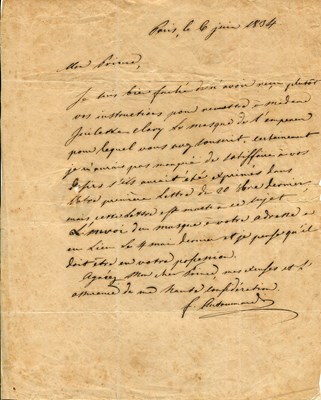 Paris, le 6 juin 1834.
Mon Prince,
Je suis bien fâché de n'avoir reçu plutôt
vos instructions pour remettre à madame
le masque de l'empereur
pour lequel vous avez souscrit, certainement
je n'aurais pas manqué de satisfaire à vos
désirs s'ils avaient été exprimés dans
votre première lettre du 20 dernier
mais cette lettre est muette à ce sujet
L'envoi du masque à votre adresse a
eu lieu le 4 mai dernier et je pense qu'il
doit être en votre possession.
Agréez Mon cher Prince, mes et l'
assurance de ma haute considération.
F. Antommarchi